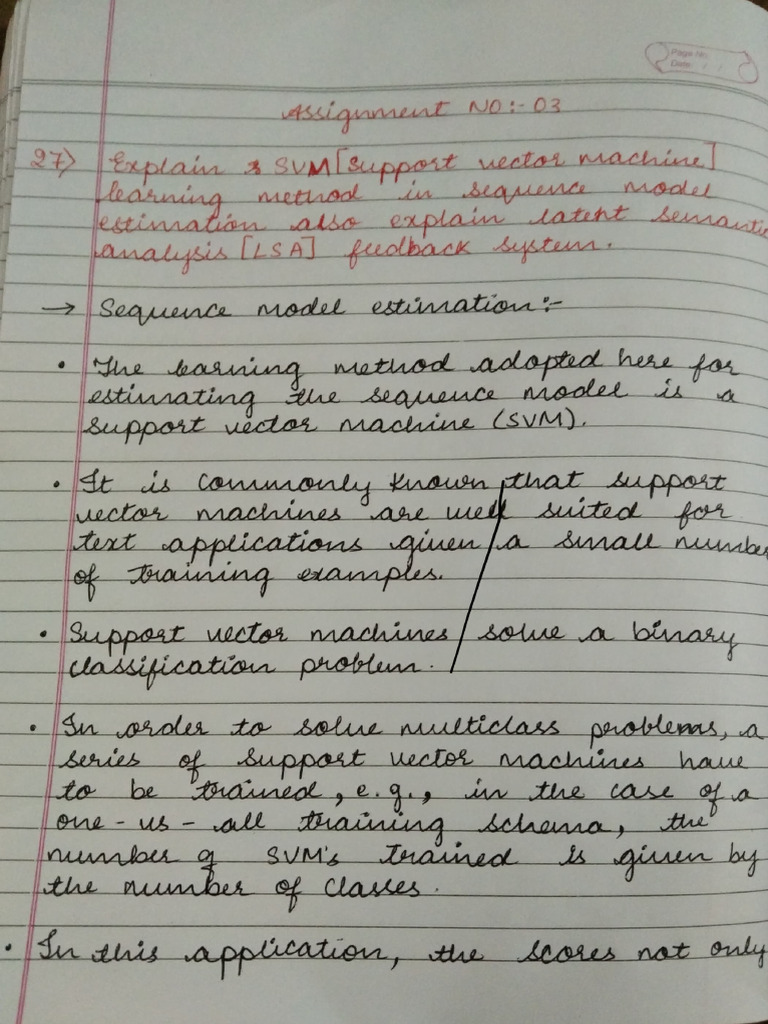 Page No.
Date / /
Assignment NO:- 03
27) Explain SVM [support vector machine]
learning method in sequence model
estimation also explain latent semantic
analysis [LSA] feedback system.
→ Sequence model estimation:-
• The learning method adopted here for
estimating the sequence model is a
support vector machine (SVM).
• It is commonly known that support
vector machines are well suited for
text applications given a small number
of training examples.
• Support vector machines solve a binary
classification problem.
• In order to solve multiclass problems, a
series of support vector machines have
to be trained, e.g., in the case of a
one-vs-all training schema, the
number of SVM's trained is given by
the number of classes.
• In this application, the scores not only